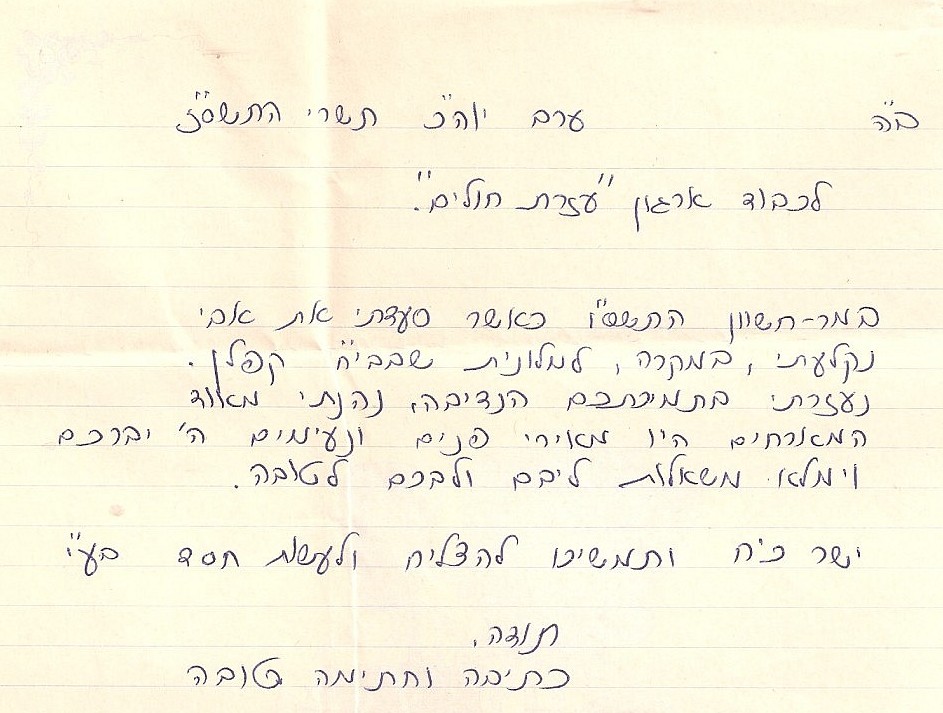 ב"ה ערב יוה"כ תשרי התשס"ז
לכבוד ארגון "עזרת חולים".
במר-חשוון התשס"ו כאשר סעדתי את אבי
נקלעתי, במקרה, למלונית שבבי"ח קפלן.
נעזרתי בתמיכתכם הנדיבה, נהנתי מאוד
המארחים היו מאירי פנים ונעימים ה' יברכם
וימלא משאלות ליבם ולבכם לטובה.
ישר כ"ח ותמשיכו להצליח ולעשות חסד בע"י
תודה,
כתיבה וחתימה טובה